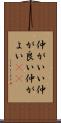 仲がいい仲
が良い仲が
よい